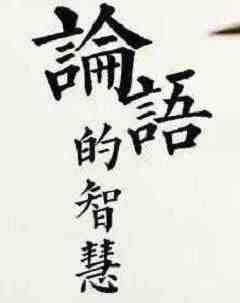 論語
的智慧